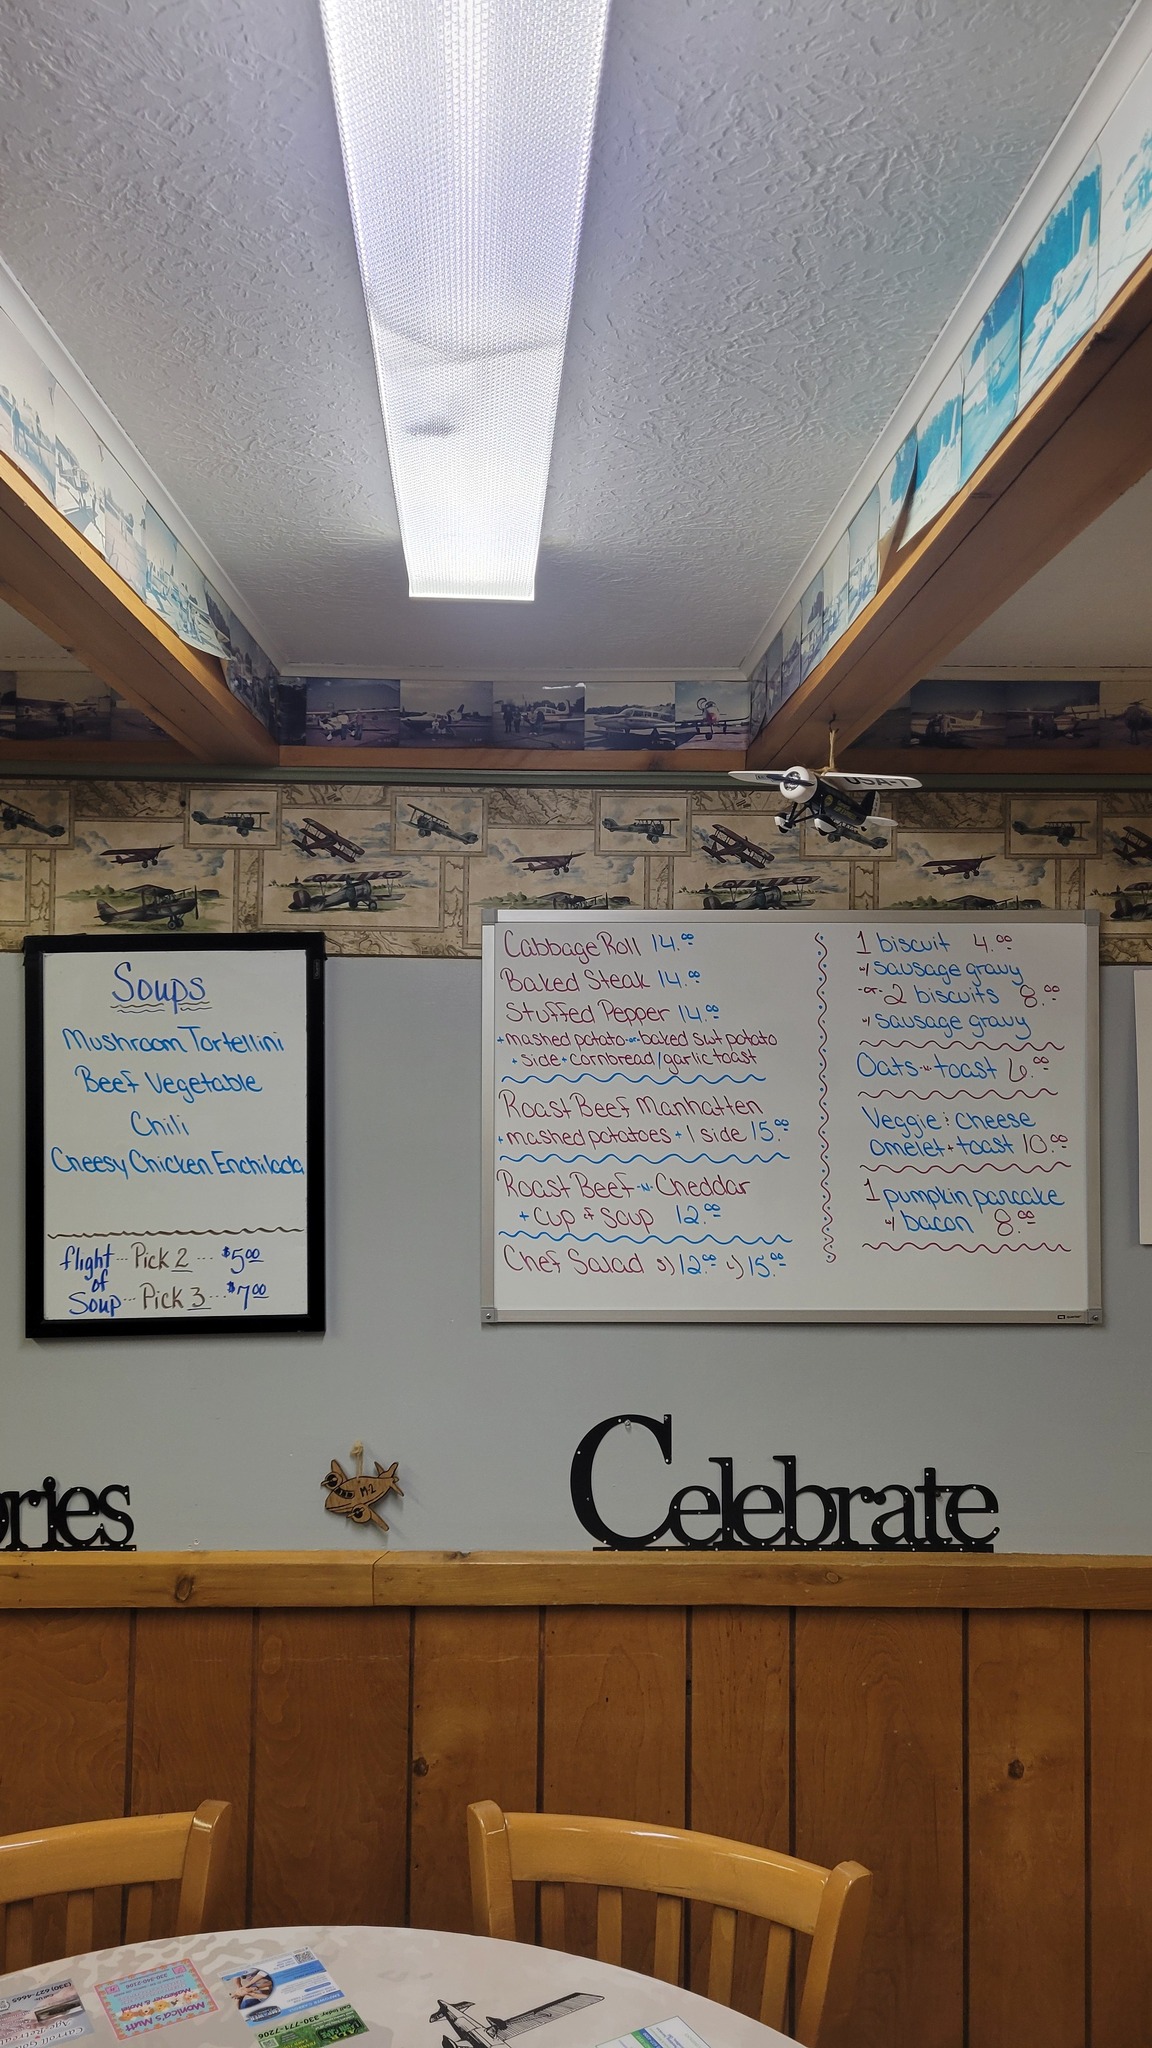 USA-7
Soups
Mushroom Tortellini
Beef Vegetable
Chili
Cheesy Chicken Enchilada
flight of Soup
Pick 2 ... $5.00
Pick 3 ... $7.00
Cabbage Roll 14.00
Baked Steak 14.00
Stuffed Pepper 14.00
+ mashed potato -or- baked swt potato
+ side + cornbread/garlic toast
Roast Beef Manhatten
+ mashed potatoes + 1 side 15.00
Roast Beef -n- Cheddar
+ Cup of Soup 12.00
Chef Salad s) 12.00 L) 15.00
1 biscuit 4.00
w/ sausage gravy
-or- 2 biscuits 8.00
w/ sausage gravy
Oats -n- toast 6.00
Veggie & cheese
omelet + toast 10.00
1 pumpkin pancake
w/ bacon 8.00
ories
M-2
Celebrate
(330) 627-4665
330-340-2106
Makeover & Motel
Monica's Mutt
330-771-7206